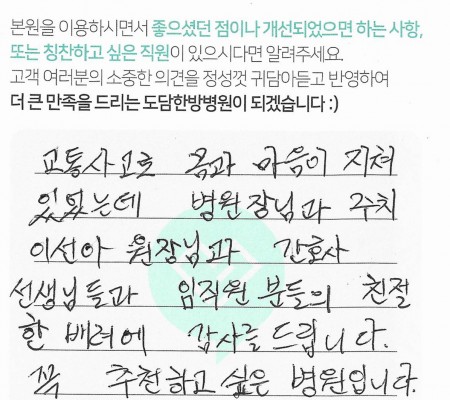 본원을 이용하시면서 좋으셨던 점이나 개선되었으면 하는 사항,
또는 칭찬하고 싶은 직원이 있으시다면 알려주세요.
고객 여러분의 소중한 의견을 정성껏 귀담아듣고 반영하여
더 큰 만족을 드리는 도담한방병원이 되겠습니다 :)
교통사고로 몸과 마음이 지쳐
있었는데 병원장님과 주치
이선아 원장님과 간호사
선생님들과 임직원 분들의 친절
한 배려에 감사를 드립니다.
꼭 추천하고 싶은 병원입니다.